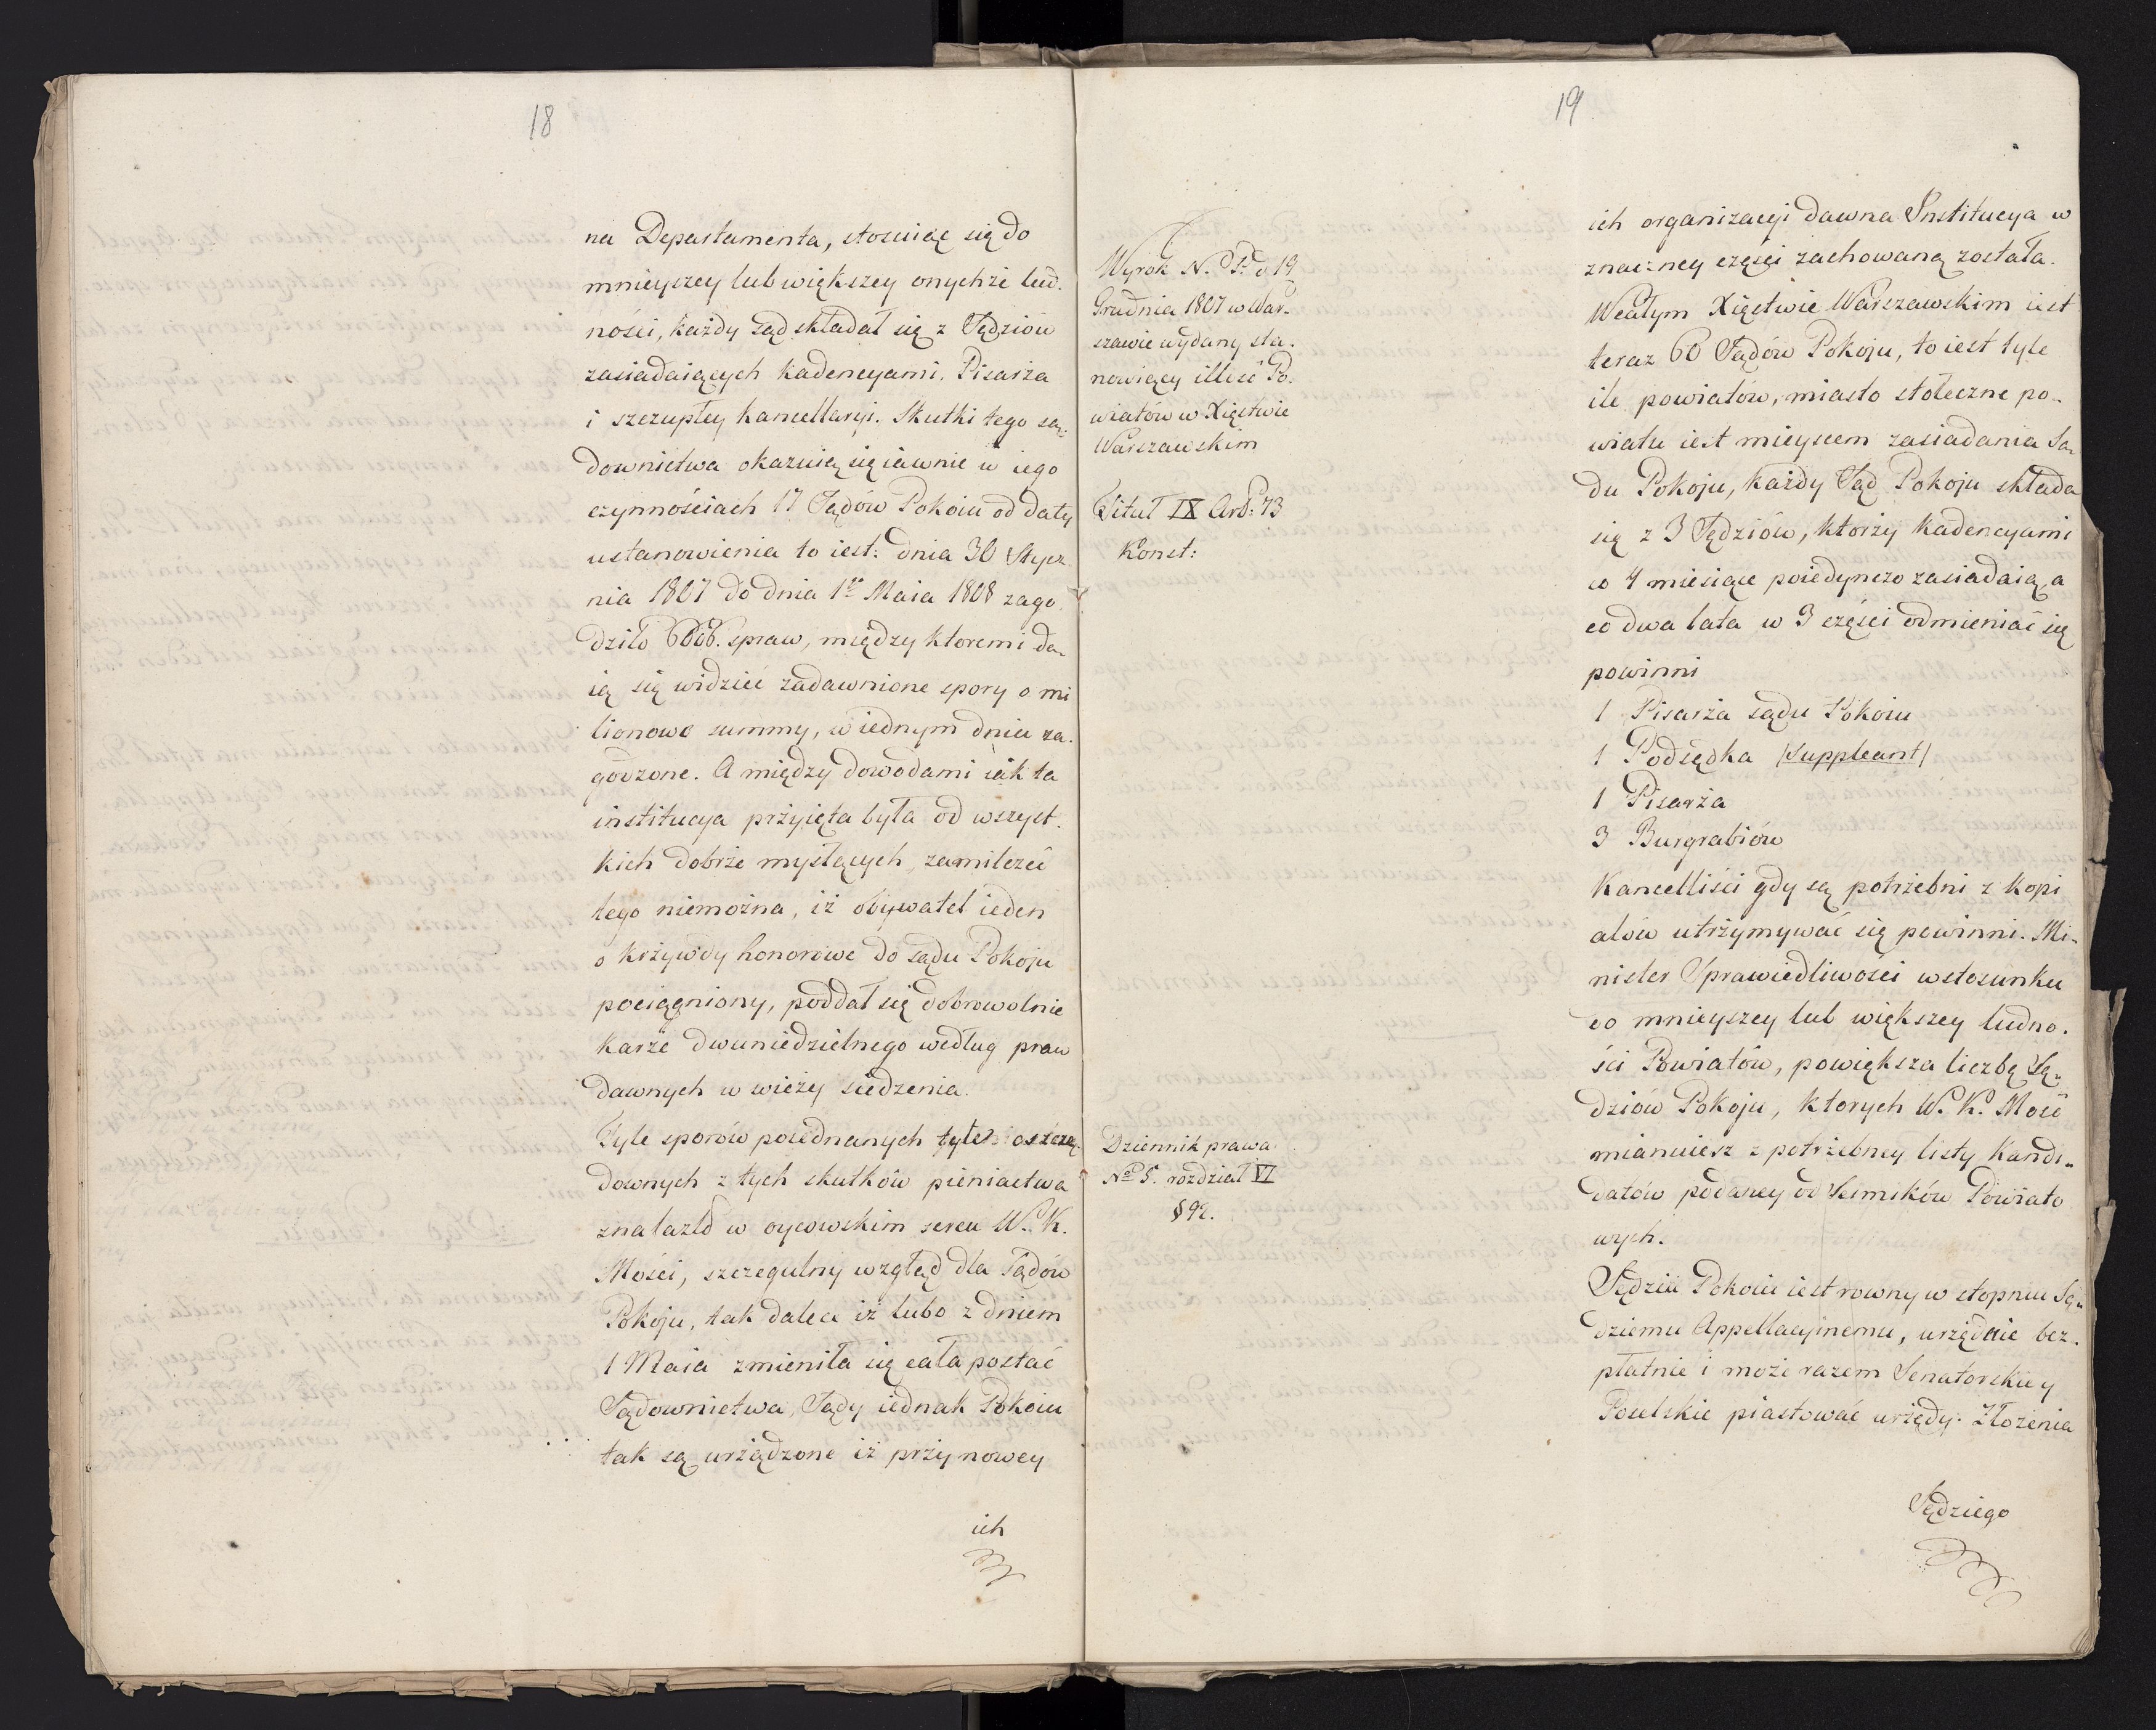 18
na Departamenta, stosuiąc się do
mnieyszey lub większey onychże lud-
ności, każdy sąd składał się z Sędziów
zasiadaiących kadencyami, Pisarza
i szczupłey kancellaryi. Skutki tego są-
downictwa okazuią się iawnie w iego
czynnościach 17 Sądów Pokoiu od daty
ustanowienia to iest: dnia 30 Stycz
nia 1807 do dnia 1go Maia 1808 zago
dziło spraw, między ktoremi da-
ią się widzieć zadawnione spory o mi
lionowe summy, w iednym dniu za-
godzone. A między dowodami iak ta
institucya przyięta była od wszyst-
kich dobrze myslących, zamilczeć
tego niemożna, iż obywatel ieden
o krzywdy honorowe do sądu Pokoju
pociągniony, poddał się dobrowolnie
karze dwuniedzielnego według praw
dawnych w wieży siedzenia.
Tyle sporów poiednanych tyle oszczę-
downych z tych skutków pieniactwa
znalazło w oycowskim sercu W. K.
Mości, szczegulny wzgłąd dla Sądów
Pokoju, tak dalece iż lubo z dniem
1 Maia zmieniła się cała postać
Sądownictwa, Sądy iednak Pokoiu
tak są urządzone iż przy nowey
ich
19
Wyrok N. P. d. 19
Grudnia 1807 w War-
szawie wydany sta-
nowiący illość Po-
wiatów w Xięstwie
Warszawskim
Tituł IX Art: 73
Konst:
Dziennik prawa
No 5. rozdział VI
§ 92.
ich organizacyi dawna Institucya w
znaczney części zachowaną została.
Wcałym Xięstwie Warszawskim iest
teraz 60 Sądów Pokoju, to iest tyle
ile powiatów, miasto stołeczne po-
wiatu iest mieyscem zasiadania Są-
du Pokoju, każdy Sąd Pokoju składa
się z 3 Sędziów, ktorzy kadencyami
co 4 miesiące poiedynczo zasiadaią, a
co dwa lata w 3 części odmieniać się
powinni
1 Pisarza sądu Pokoiu
1 Podsędka /Suppleant/
1 Pisarza
3 Burgrabiów
Kancelliści gdy są potrzebni z kopi
alów utrzymywać się powinni. Mi-
nister Sprawiedliwości wstosunku
co mnieyszey lub większey ludno-
ści Powiatów, powiększa liczbę Sę-
dziów Pokoju, ktorych W. K. Mość
mianuiesz z potrzebney listy Kandi-
datów podaney od Seimików Powiato
wych.
Sędzia Pokoiu iest rowny w stopniu Sę-
dziemu Appellacyinemu, urzęduie bez-
płatnie i może razem Senatorskie y
Poselskie piastować urzędy. Złożenia
Sędziego